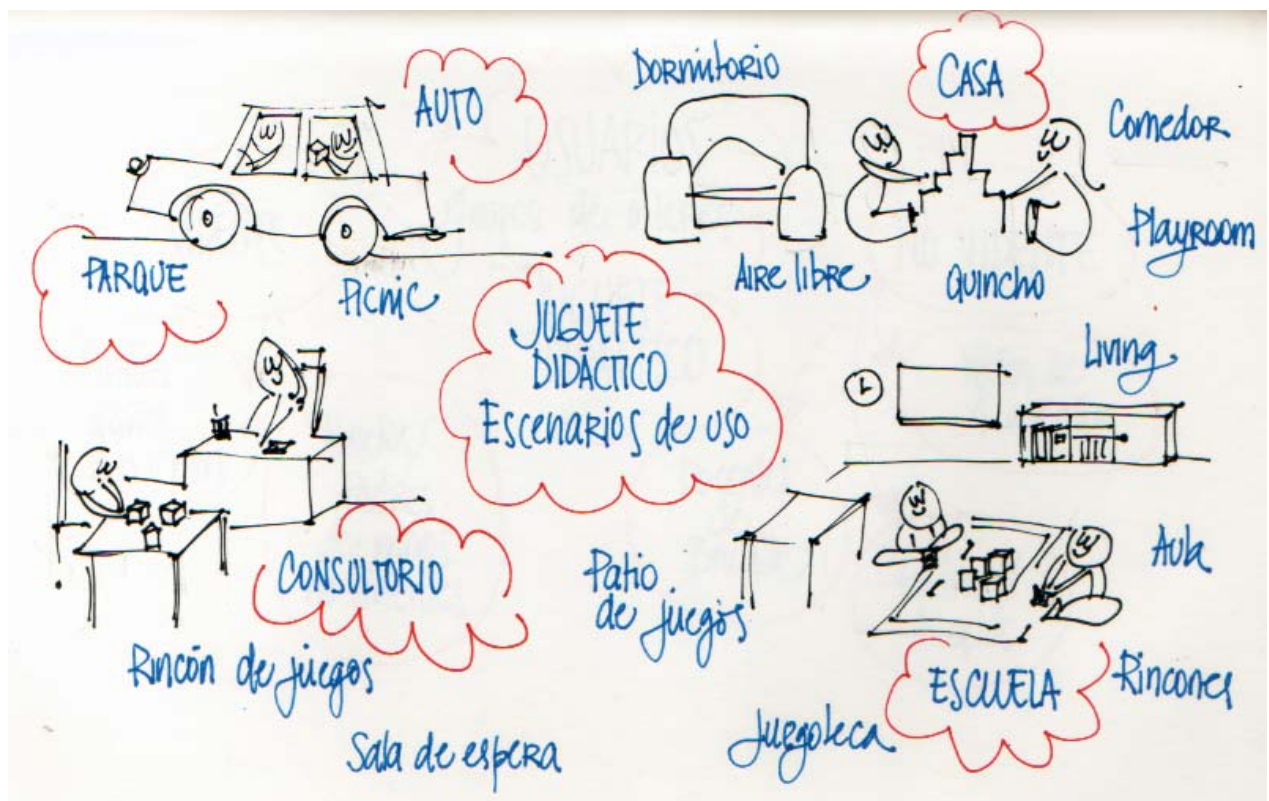 Dormitorio
CASA
AUTO
Comedor
Playroom
PARQUE
Picnic
Aire libre
Quincho
JUGUETE
DIDÁCTICO
Escenarios de uso
Living
CONSULTORIO
Patio
de juegos
Aula
Rincón de juegos
ESCUELA
Rincones
Juegoteca
Sala de espera